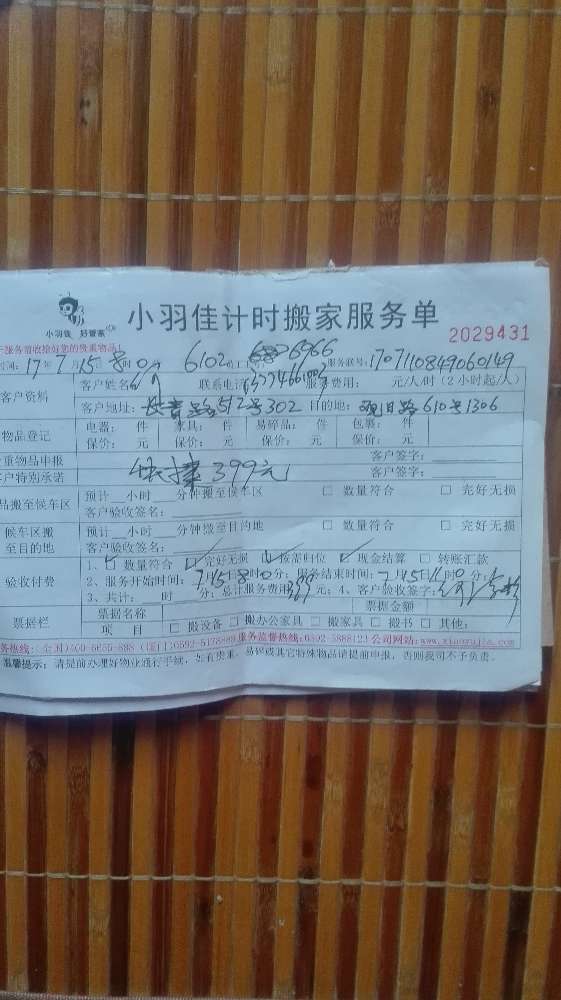 小羽佳 好管家
小羽佳计时搬家服务单
2029431
服务前收拾好您的贵重物品!
时间: 17年7月15日8时0分 6102 6966 服务联号: 1707110849060149
客户资料 客户姓名 联系电话 服务费用: 元/人/时 (2小时起/人)
客户地址: 长青路512号302 目的地: 观日路610号1306
物品登记 电器: 件 家具: 件 易碎品: 件 包裹: 件
保价: 元 保价: 元 保价: 元 保价: 元
贵重物品申报 客户签字:
客户特别承诺 快捷399元 客户签字:
品搬至候车区 预计__小时__分钟搬至候车区 □ 数量符合 □ 完好无损
客户验收签名:
候车区搬至目的地 预计__小时__分钟搬至目的地 □ 数量符合 □ 完好无损
客户验收签名:
验收付费 1、☑ 数量符合 ☑ 完好无损 ☑ 按需归位 ☑ 现金结算 □ 转账汇款
2、服务开始时间: 7月15日8时0分; 服务结束时间: 7月15日 时0分;
3、共计: 时 分; 总计服务费用399元; 4、客户验收签字:
票据栏 票据名称 票据金额
项 目 □ 搬设备 □ 搬办公家具 □ 搬家具 □ 搬书 □ 其他:
服务监督热线:0592-5888123 公司网站:www.xiaoyujia.com
温馨提示: 请提前办理好物业通行手续, 如有贵重、易碎或其它特殊物品请提前申报, 否则我司不予负责。